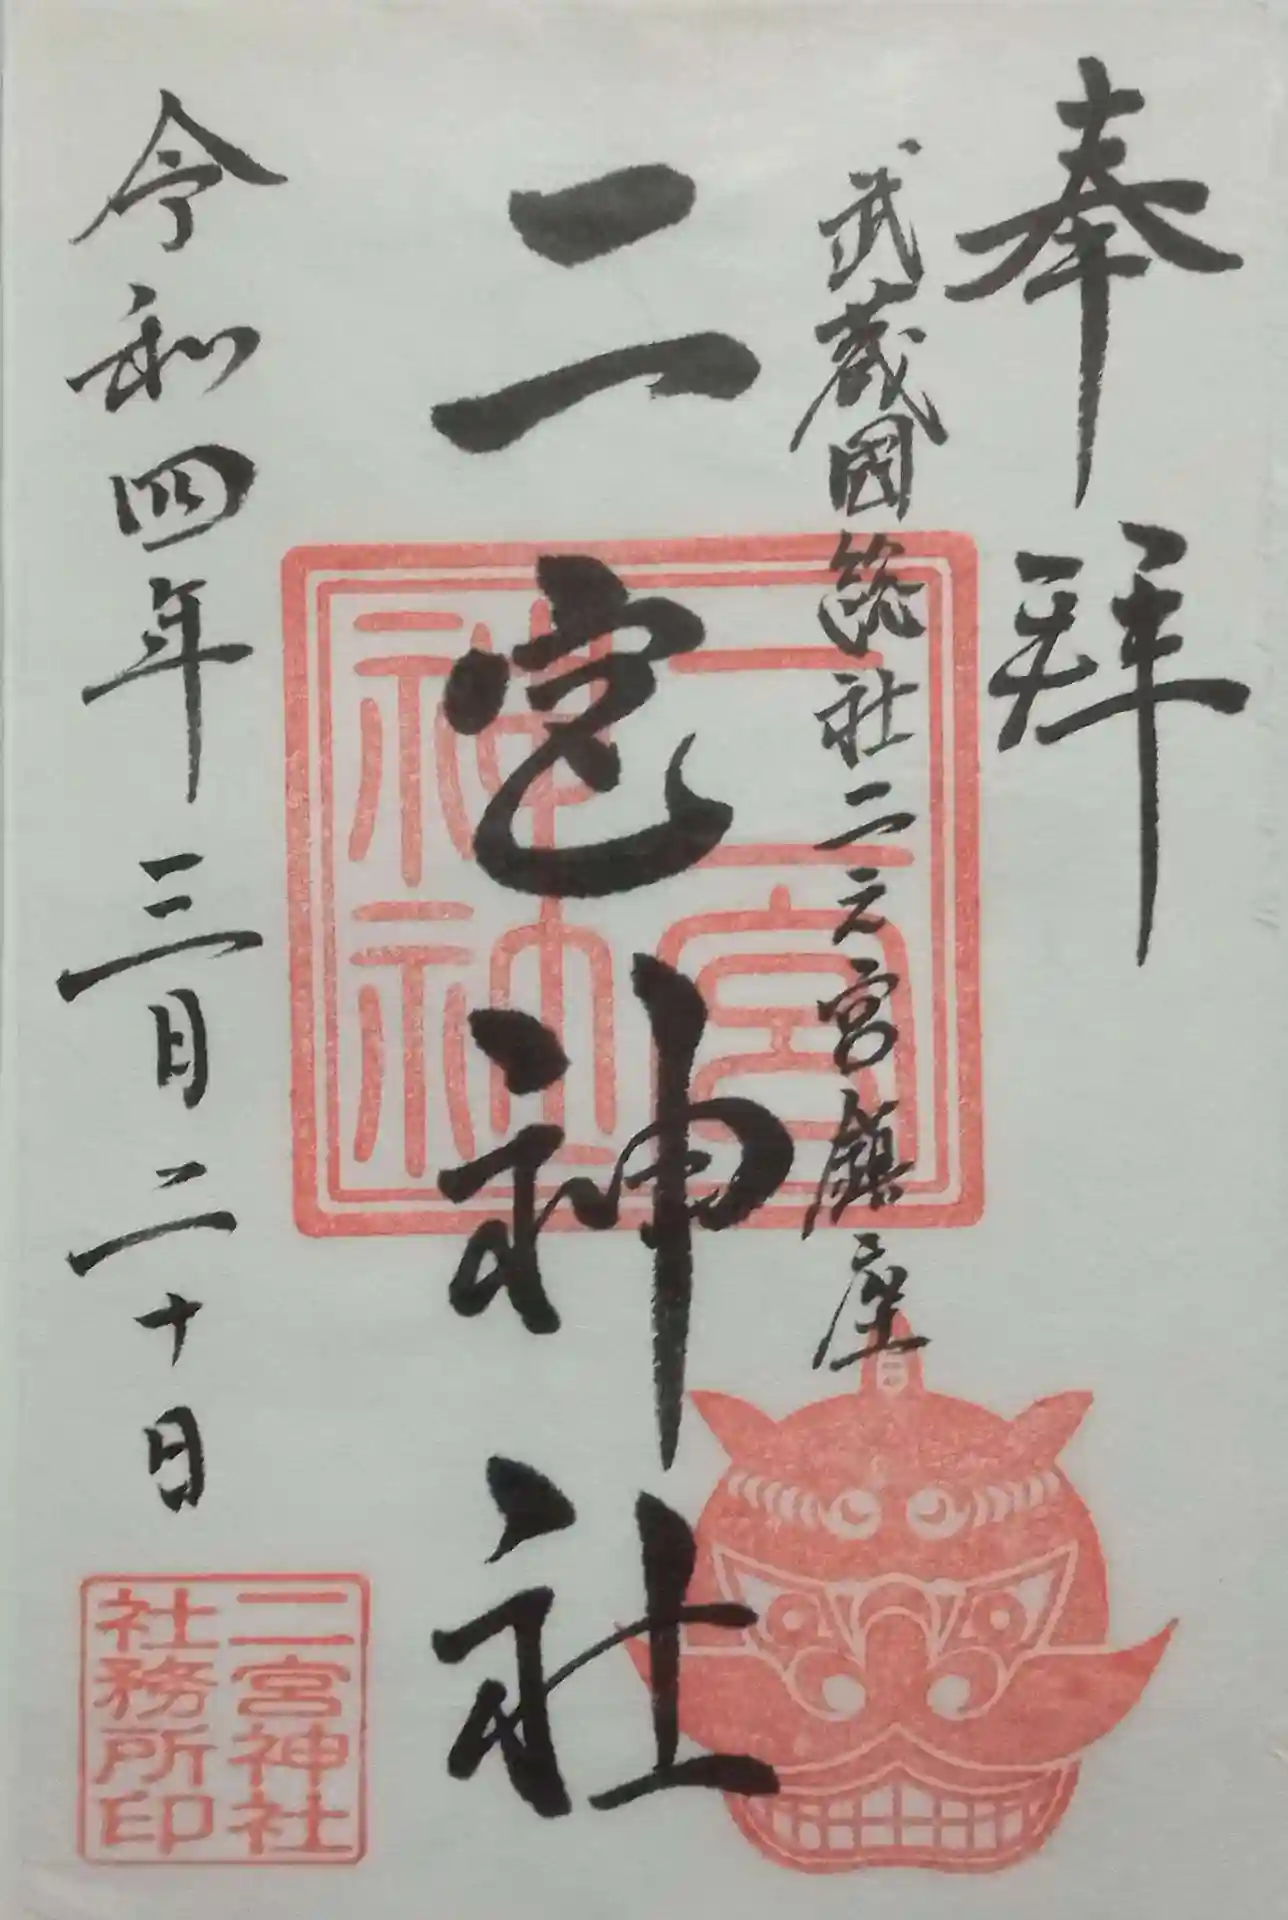 奉拝
武蔵國総社二之宮鎮座
二宮神社
二宮神社
令和四年三月二十日
二宮神社
社務所印